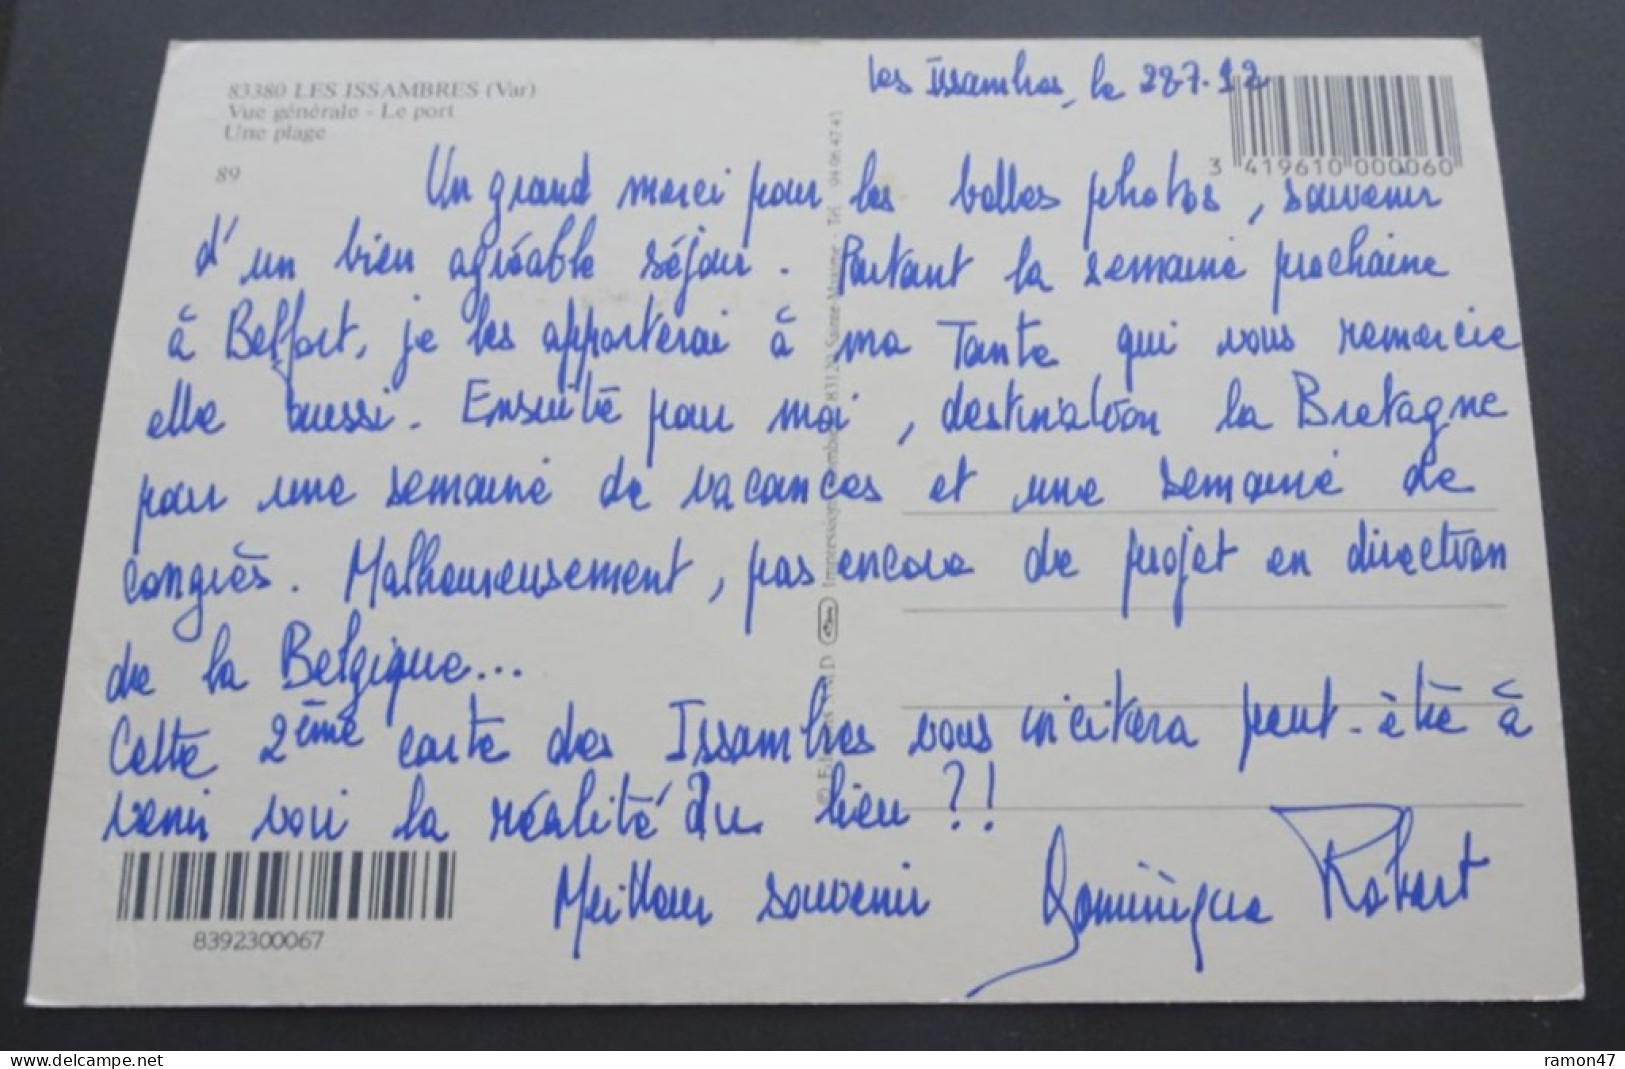 83380 LES ISSAMBRES (Var)
Vue générale - Le port
Une plage
89
Les Issambres, le 28-7-92
3 419610 000060
Un grand merci pour les belles photos, souvenir
d'un bien agréable séjour. Partant la semaine prochaine
à Belfort, je les apporterai à ma Tante qui vous remercie
elle aussi. Ensuite pour moi, destination la Bretagne
pour une semaine de vacances et une semaine de
congrès. Malheureusement, pas encore de projet en direction
de la Belgique...
Cette 2ème carte des Issambres vous incitera peut-être à
venir voir la réalité du lieu ?!
Meilleur souvenir Dominique Robert
8392300067
Impression 83120 Sainte-Maxime - Tél. 94 96 42 43
www.delcampe.net
ramon47